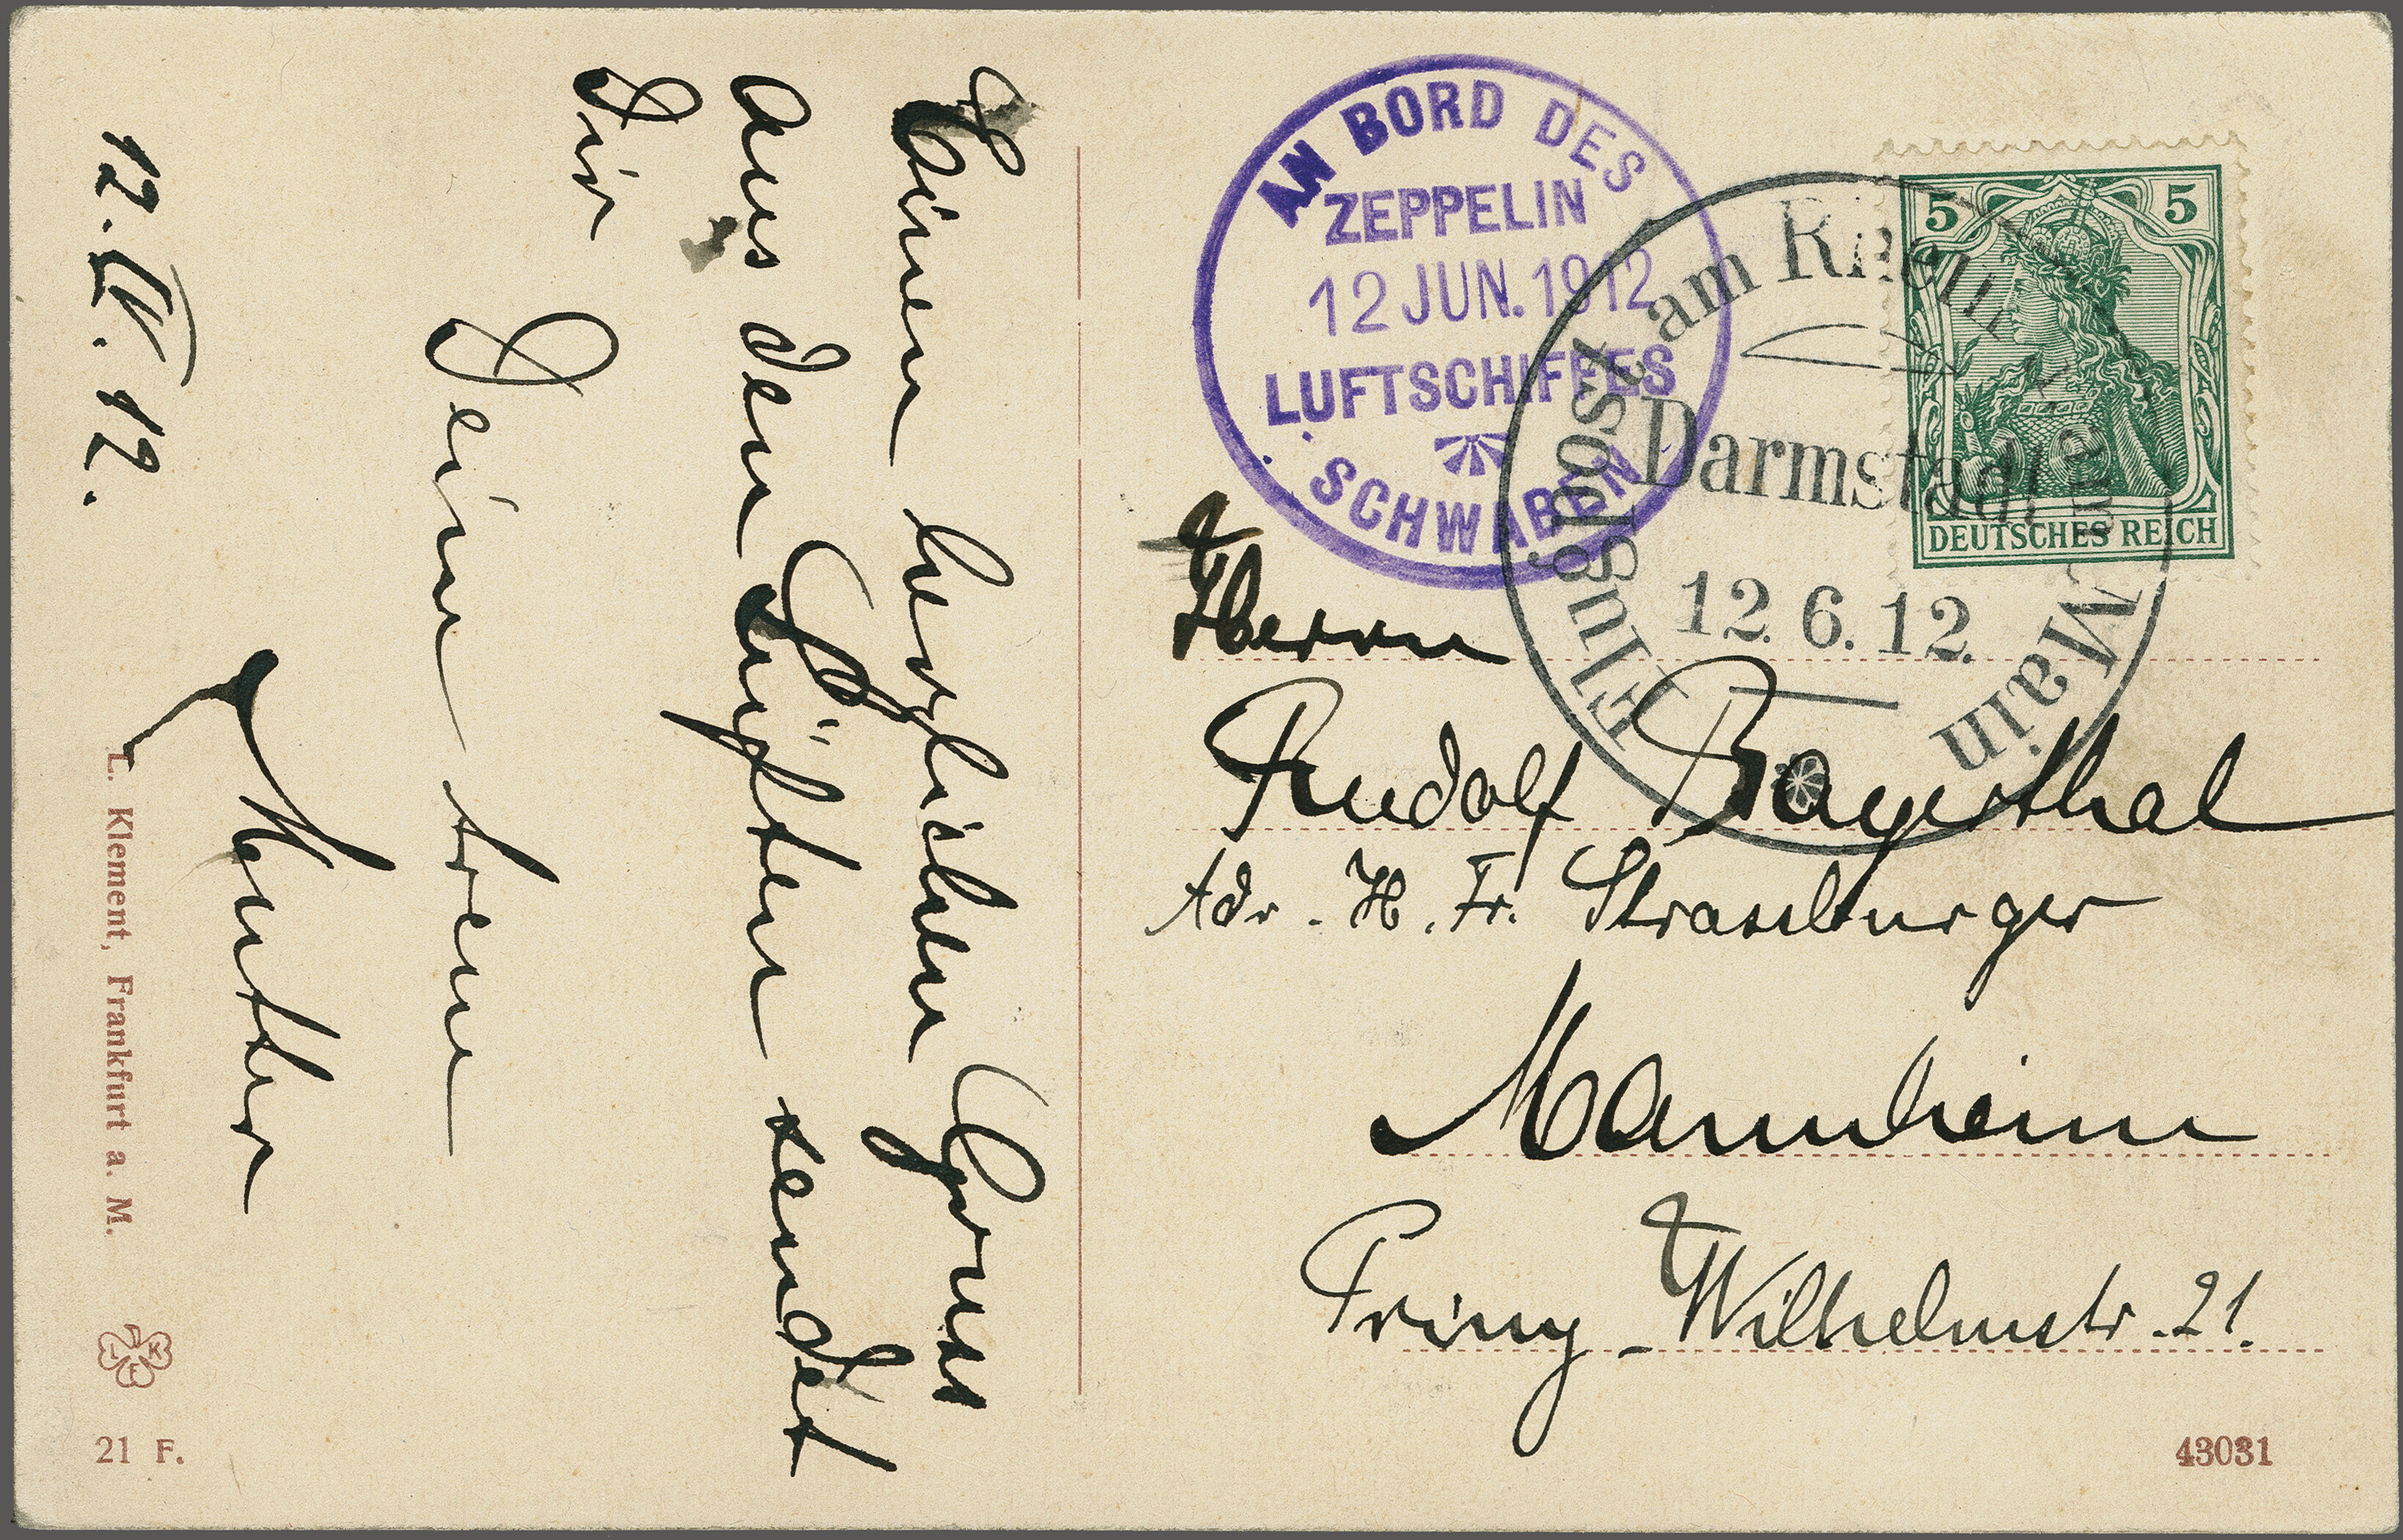 Einen herzlichen Gruss
aus den Lüften sendet
Dir
Dein treuer
12. VI. 12.
L. Klement, Frankfurt a. M.
L K F
21 F.
AN BORD DES
ZEPPELIN
12 JUN. 1912
LUFTSCHIFFES
SCHWABEN
Flugpost am Rhein u. am Main
Darmstadt
12. 6. 12.
5 5
DEUTSCHES REICH
Herrn
Rudolf Bayerthal
Adr. H. Fr. Strassburger
Mannheim
Prinz-Wilhelmstr. 21.
43031